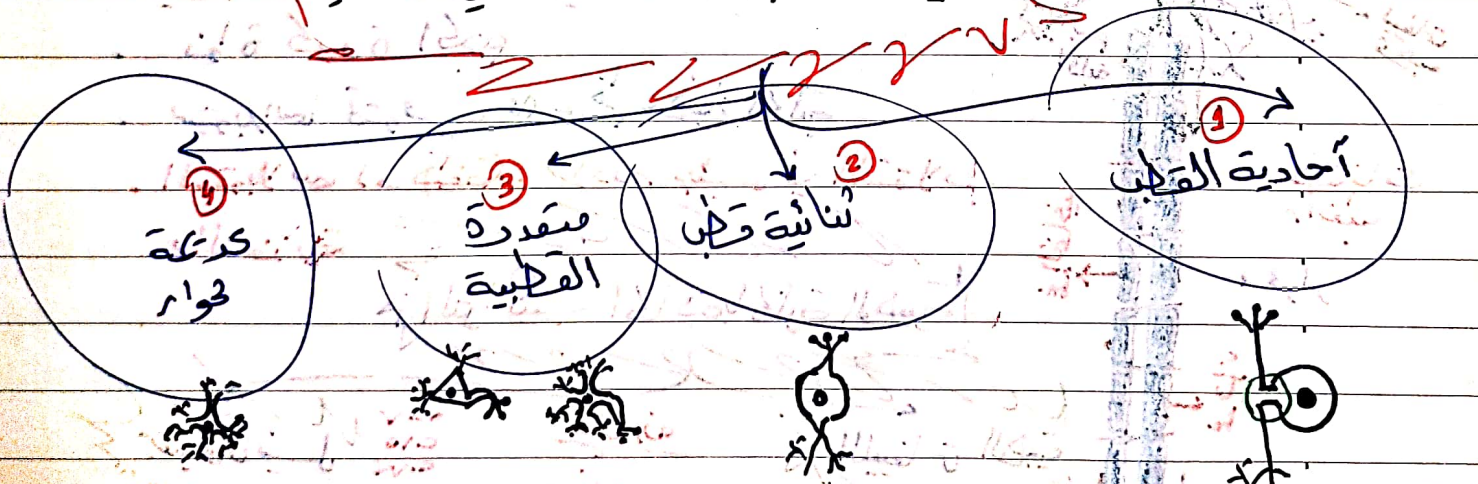 ①
آحادية القطب
②
ثنائية قطب
③
متعددة
القطبية
④
عديمة
محوار